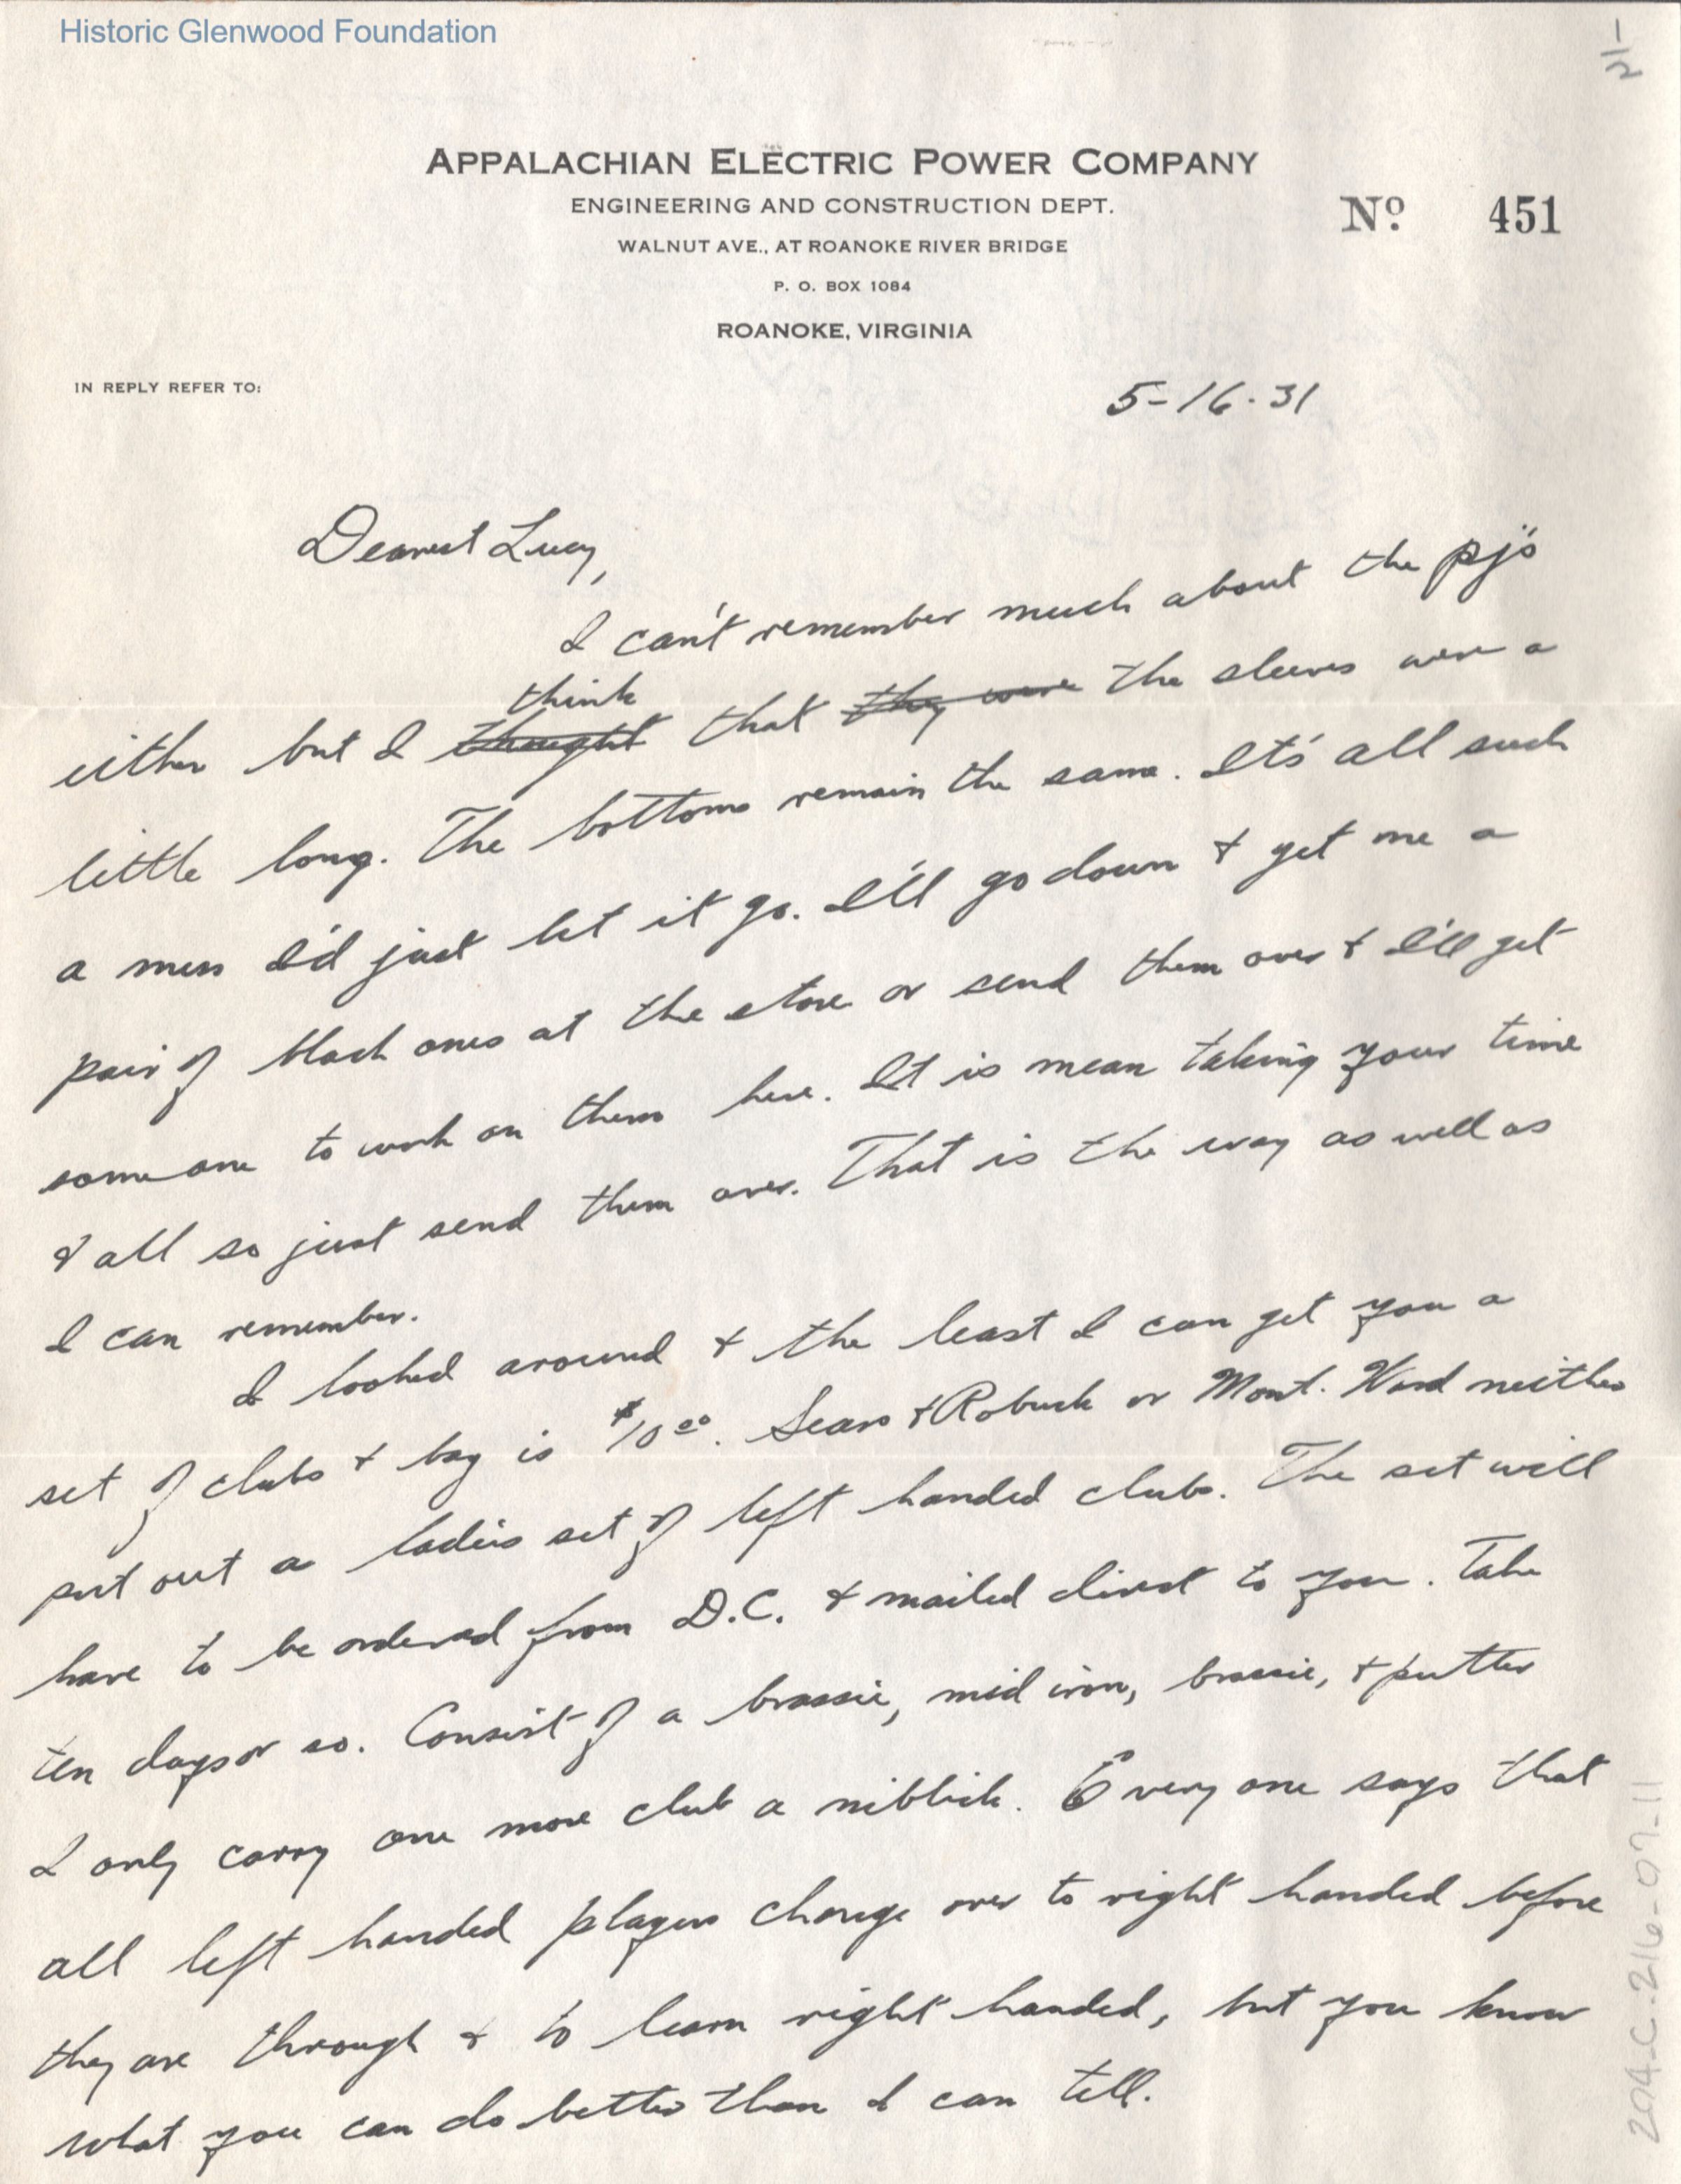 Historic Glenwood Foundation
APPALACHIAN ELECTRIC POWER COMPANY
ENGINEERING AND CONSTRUCTION DEPT.
Nº 451
WALNUT AVE., AT ROANOKE RIVER BRIDGE
P. O. BOX 1084
ROANOKE, VIRGINIA
IN REPLY REFER TO:
5-16-31
Dearest Lucy,
I can't remember much about the pj's
think
either but I thought that they were the sleeves were a
little long. The bottoms remain the same. It's all such
a mess I'd just let it go. I'll go down & get me a
pair of black ones at the store or send them over & I'll get
some one to work on them here. It is mean taking your time
& all so just send them over. That is the way as well as
I can remember.
I looked around & the least I can get you a
set of clubs & bag is $10.00. Sears & Robuck or Mont. Ward neither
put out a ladies set of left handed clubs. The set will
have to be ordered from D.C. & mailed direct to you. Take
ten days or so. Consist of a brassie, mid iron, brassie, & putter
I only carry one more club a niblick. Every one says that
all left handed players change over to right handed before
they are through & to learn right handed, but you know
what you can do better than I can tell.
204-C-216-07-11